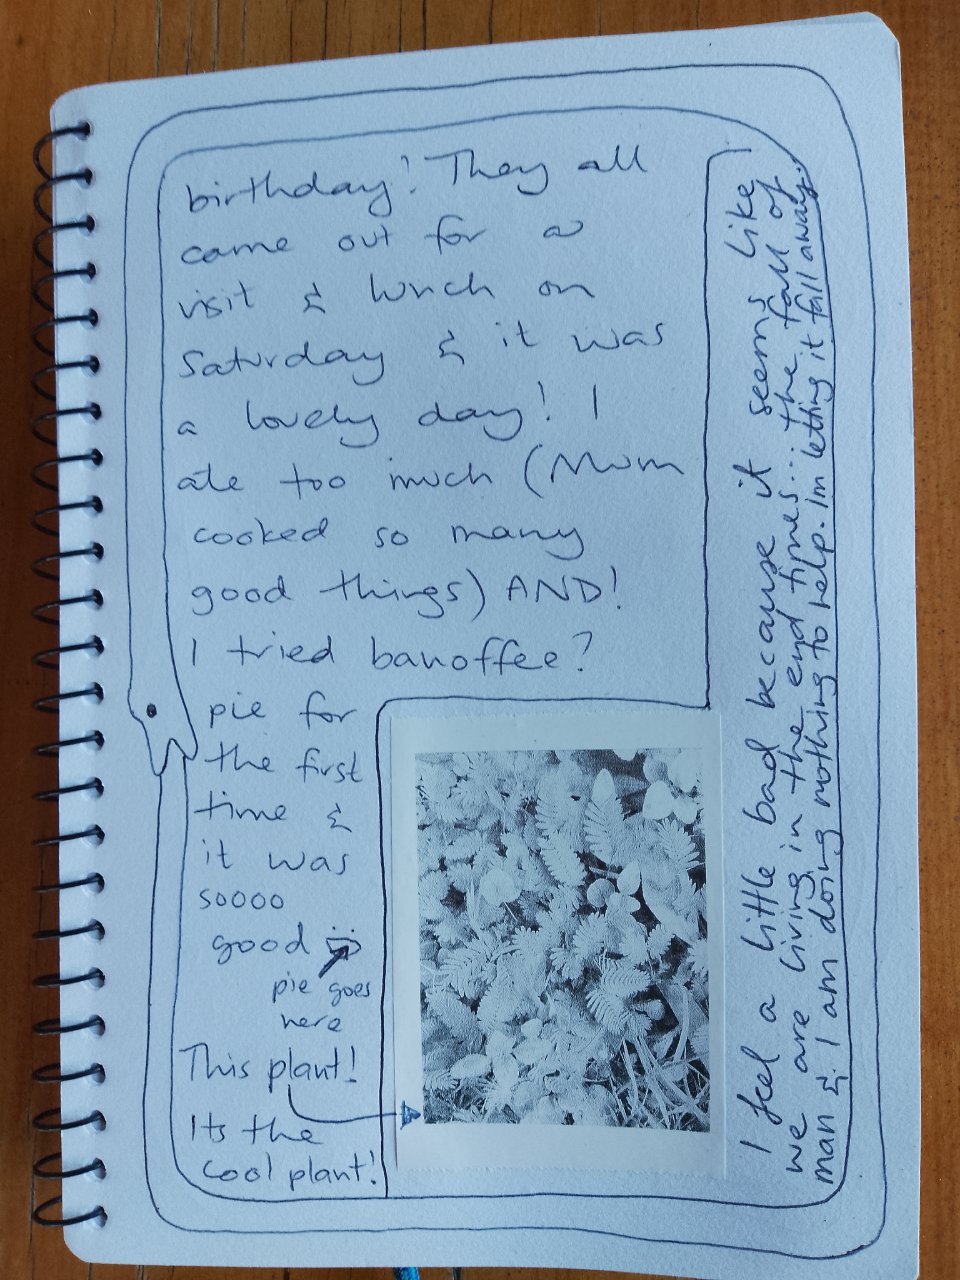 birthday! They all
came out for a
visit & lunch on
Saturday & it was
a lovely day! I
ate too much (Mum
cooked so many
good things) AND!
I tried banoffee?
pie for
the first
time &
it was
soooo
good
pie goes
here
This plant!
Its the
cool plant!
I feel a little bad because it seems like
we are living in the end times... the fall of
man & I am doing nothing to help. Im letting it fall away.